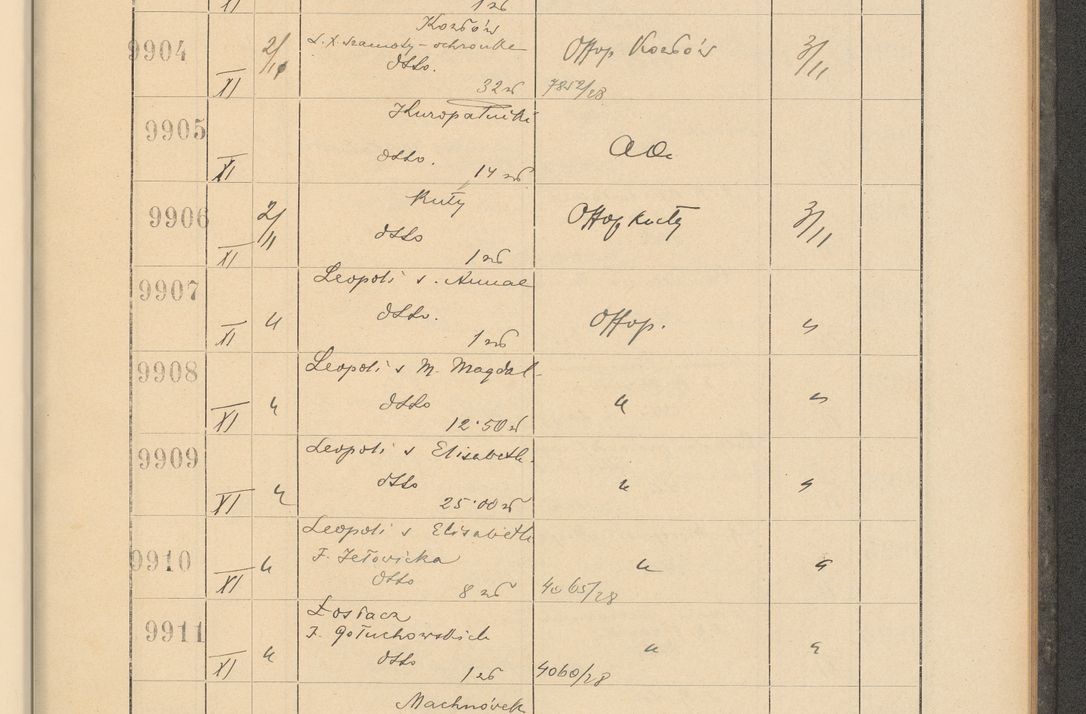 XI 1 zł
9904 XI 2/11 Kozłów
dtto. 32 zł Offop Kozłów 7852/28 3/11
9905 XI Kuropatniki
dtto. 14 zł aa.
9906 XI 2/11 Kuty
dtto 1 zł Offop Kuty 3/11
9907 XI " Leopoli s. Annae
dtto. 1 zł Offop. "
9908 XI " Leopoli s M. Magdal.
dtto 12·50 zł " "
9909 XI " Leopoli s Elisabeth.
dtto 25·00 zł " "
9910 XI " Leopoli s Elisabeth
F. Jełowicka
dtto 8 zł 4065/28 " "
9911 XI " Łosiacz
F. Gołuchowskich
dtto 1 zł 4060/28 " "
Machnówek